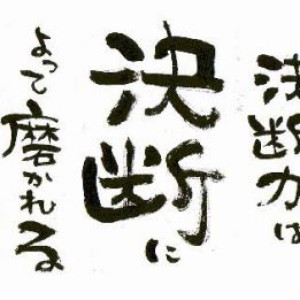 決断力は
決断に
よって磨かれる